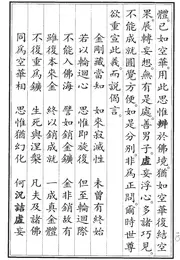 體已如空華用此思惟辨於佛境猶如空華復結空
果展轉妄想無有是處善男子虛妄浮心多諸巧見
不能成就圓覺方便如是分別非為正問爾時世尊
欲重宣此義而說偈言
金剛藏當知　如來寂滅性　未曾有終始
若以輪迴心　思惟即旋復　但至輪迴際
不能入佛海　譬如銷金鑛　金非銷故有
雖復本來金　終以銷成就　一成真金體
不復重為鑛　生死與涅槃　凡夫及諸佛
同為空華相　思惟猶幻化　何況詰虛妄